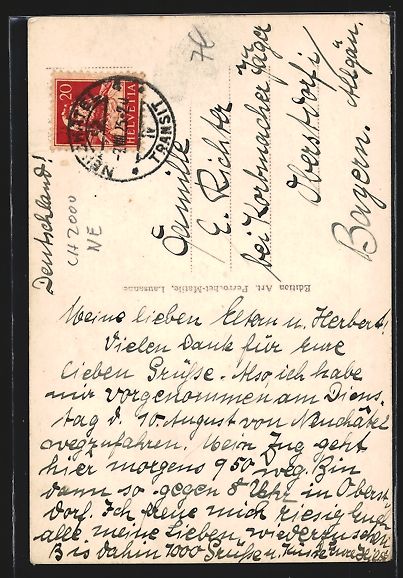 20
HELVETIA
NEUCHATEL
TRANSIT
Deutschland!
CH 2000
NE
7L
Familie
E. Richter
bei Korbmacher Jäger
Oberstdorf i/
Bayern. Allgäu.
Edition Art. Perrochet-Matile, Lausanne
Meine lieben Eltern u. Herbert!
Vielen Dank für Eure
lieben Grüße. Also ich habe
mir vorgenommen am Diens-
tag d. 10. August von Neuchâtel
wegzufahren. Mein Zug geht
hier morgens 9 50 weg. Bin
dann so gegen 8 Uhr in Oberst
dorf. Ich freue mich riesig Euch
alle meine Lieben, wiederzusehen.
Bis dahin 1000 Grüße u. Küsse Eure